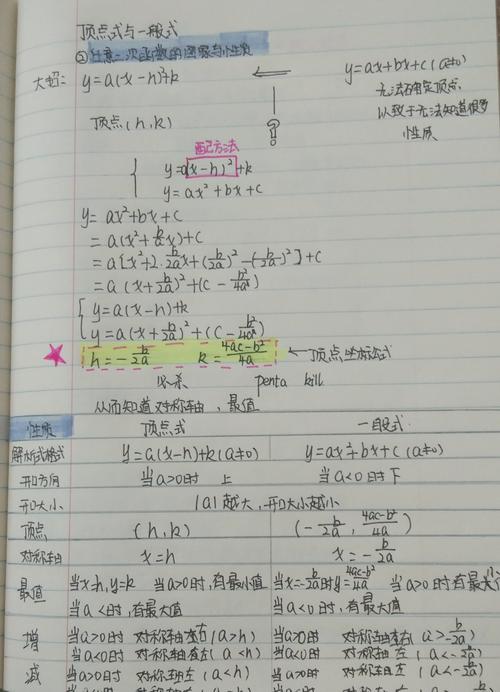 顶点式与一般式
② 任意二次函数的图象与性质
大招: y=a(x-h)²+k ← y=ax+bx+c (a≠0)
无法确定顶点,
顶点(h,k)
以致于无法知道很多
性质
配方法
y=a(x-h)²+k
y=ax²+bx+c
y=ax²+bx+c
=a(x²+b/a x)+c
=a[x²+2·b/2a x+(b/2a)²-(b/2a)²]+c
=a(x+b/2a)²+(c-b²/4a)
y=a(x-h)+k
y=a(x+b/2a)²+(c-b²/4a)
h=-b/2a k=4ac-b²/4a ← 顶点坐标公式
必杀 penta kill
从而知道对称轴,最值
性质 顶点式 一般式
解析式格式 y=a(x-h)+k(a≠0) y=ax²+bx+c (a≠0)
开口方向 当a>0时 上 当a<0时 下
开口大小 |a|越大,开口大小越小
顶点 (h,k) (-b/2a, 4ac-b²/4a)
对称轴 x=h x=-b/2a
最值 当x=h,y=k 当a>0时,有最小值 当x=-b/2a时y=4ac-b²/4a 当a>0时有最小
当a<时,有最大值 当a<0时,有最大值
增 当a>0时 对称轴右(a>h) 当a>0时 对称轴右(a>-b/2a)
当a<0时 对称轴左(a<h) 当a<0时 对称轴左(a<-b/2a)
减 当a>0时 对称轴左(a<h) 当a>0时 对称轴左(a<-b/2a)